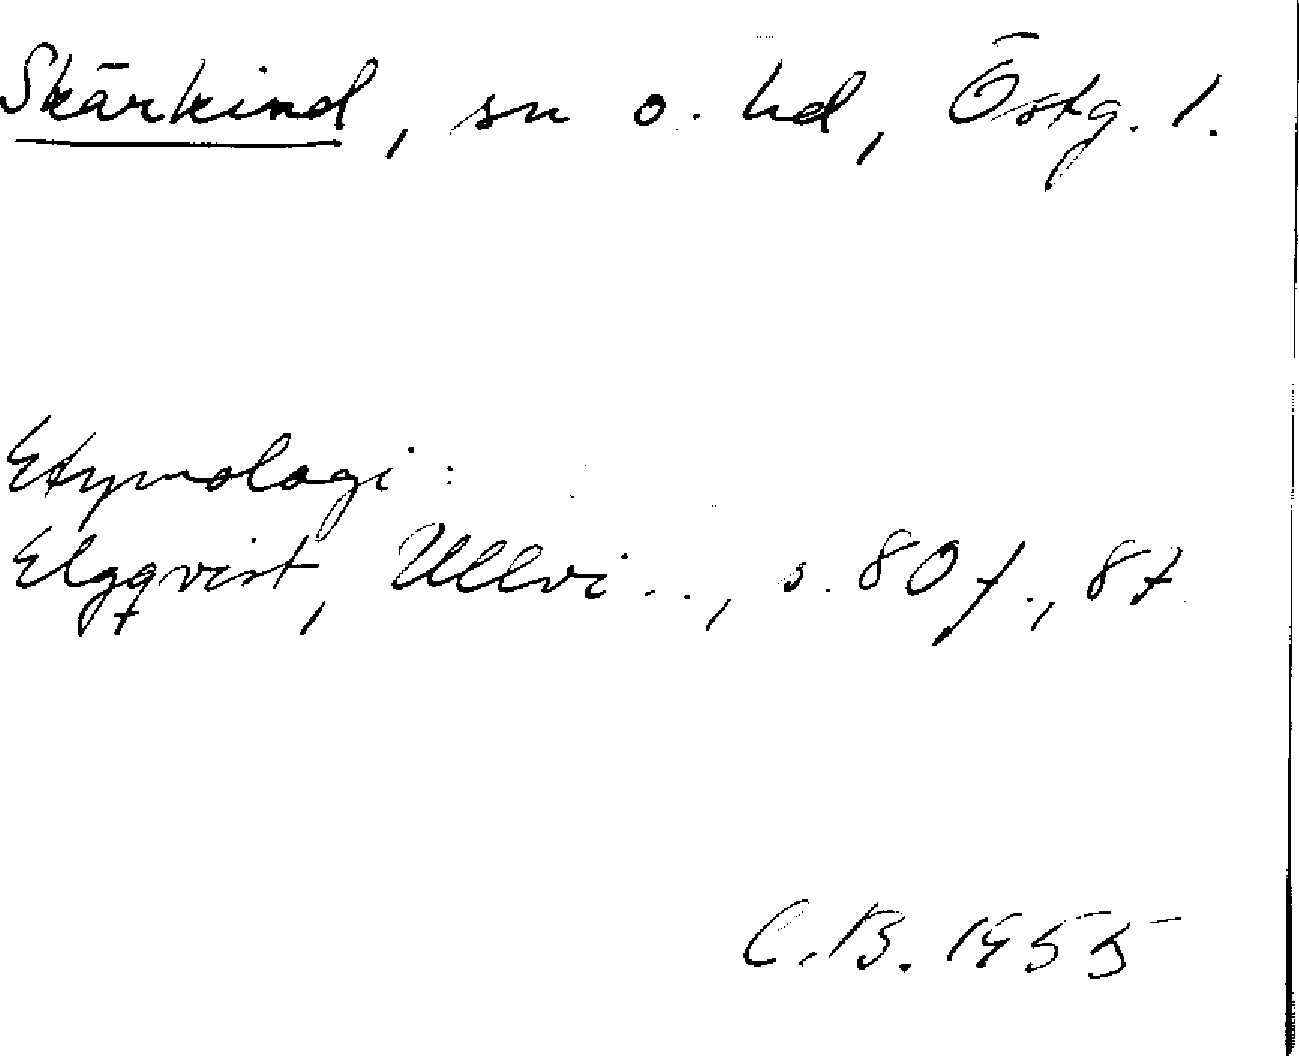 Skärkind, sn o. hd, Östg. l.
Etymologi:
Elgqvist, Ullvi..., s. 80 f., 87
C.B. 1955